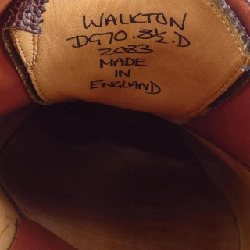 WALKTON
DG70.8½.D
2083
MADE
IN
ENGLAND